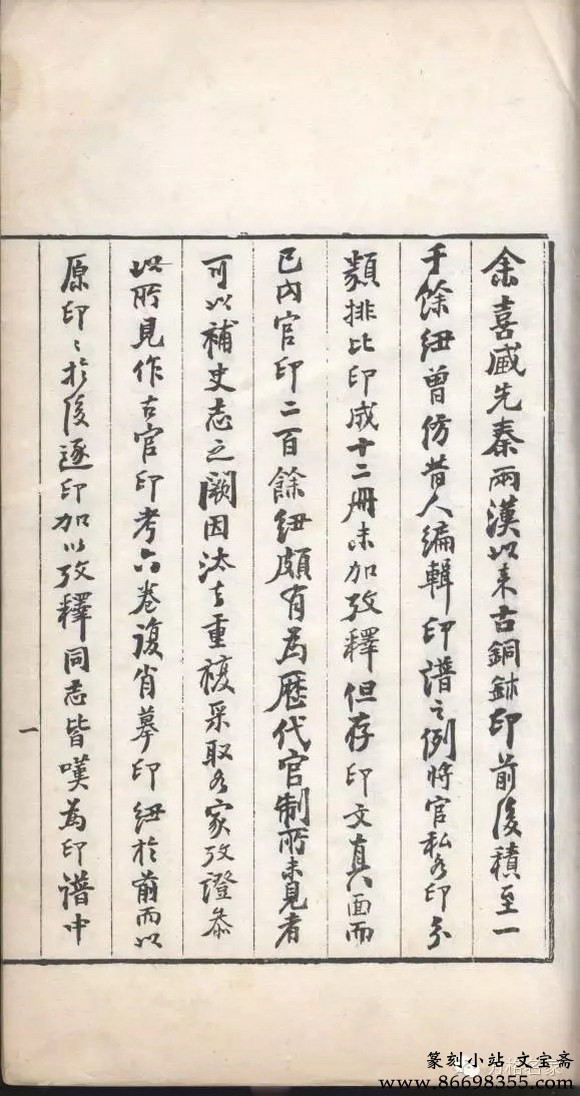 余喜臧先秦兩漢以来古銅鉥印前後積至一
千餘紐曽仿昔人編輯印譜之例將官私各印分
類排比印成十二冊未加攷釋但存印文真面而
已内官印二百餘紐頗有為歷代官制所未見者
可以補史志之闕因汰去重複采取各家攷證叅
以所見作古官印考六卷復肖摹印紐於前而以
原印〻於後逐印加以攷釋同志皆嘆為印譜中
一
篆刻小站 文宝斋
www.86698355.com